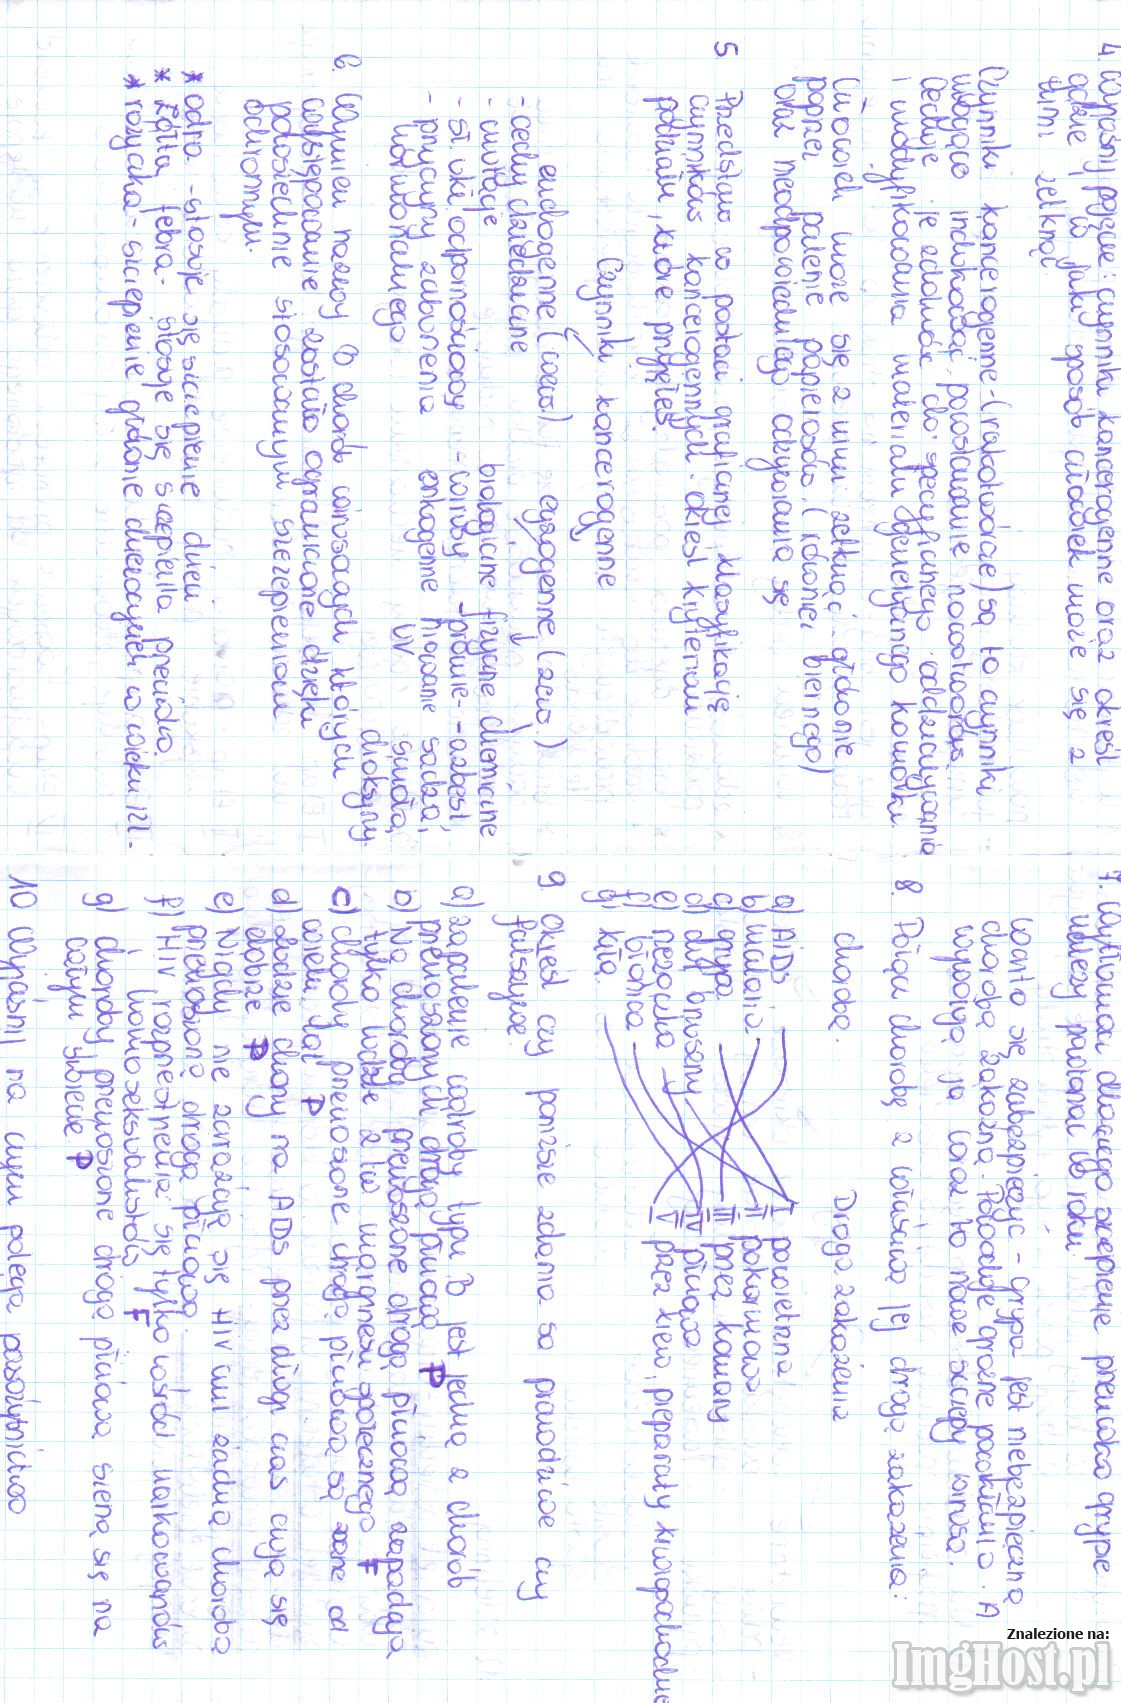 4. Wyjaśnij pojęcie: czynniki kancerogenne oraz określ
gdzie i w jaki sposób człowiek może się z
nimi zetknąć
Czynniki kancerogenne - (rakotwórcze) są to czynniki
mogące indukować powstawanie nowotworów.
Decyduje je zdolność do specyficznego oddziaływania
i modyfikowania materiału genetycznego komórki.
Człowiek może się z nimi zetknąć głównie
poprzez palenie papierosów (również biernego)
oraz nieodpowiedniego odżywiania się
5 Przedstaw w postaci graficznej klasyfikację
czynników kancerogennych. Określ kryterium
podziału, które przyjęłeś.
Czynniki kancerogenne
endogenne (wew.) egzogenne (zew.)
- cechy dziedziczne biologiczne fizyczne chemiczne
- mutacje - wirusy - promie- - azbest,
- st. ukł odpornościowy
- przyczyny zaburzenia enkogenne niowanie sadza,
hormonalnego UV smoła,
dioksyny.
6. Wymień nazwy 3 chorób wirusowych których
występowanie zostało ograniczone dzięki
powszechnie stosowanym szczepieniom
ochronnym.
* odra - stosuje się szczepienie dzieci
* żółta febra - stosuje się szczepienia przeciwko.
* różyczka - szczepienie głównie dziewczynek w wieku 12l.
7. dlaczego szczepienie przeciwko grypie
należy powtarzać co roku.
Warto się zabezpieczyć - grypa jest niebezpieczną
chorobą zakaźną. Powoduje groźne powikłania. A
wywołują ją coraz to nowe szczepy wirusa.
8. Połącz chorobę z właściwą jej drogą zakażenia:
choroba. Droga zakażenia
a) AIDS I powietrzna
b) malaria II pokarmowa
c) grypa III przez komary
d) dur brzuszny IV płciowa
e) rzeżączka V przez krew, preparaty krwiopochodne
f) błonica
g) kiła.
9 Określ czy poniższe zdania są prawdziwe czy
fałszywe.
a) zapalenie wątroby typu B jest jedną z chorób
przenoszonych drogą płciową P
b) Na choroby przenoszone drogą płciową zapadają
tylko ludzie z tw marginesu społecznego F
c) choroby przenoszone drogą płciową są znane od
wielu lat P
d) Ludzie chory na AIDS przez długi czas czują się
dobrze P
e) Nigdy nie zarażają się HIV ani żadną chorobą
przenoszoną drogą płciową.
f) HIV rozprzestrzenia się tylko wśród narkomanów
i homoseksualistów F
g) choroby przenoszone drogą płciową szerzą się na
całym świecie P
10 Wyjaśnij na czym polega pasożytnictwo
Znalezione na:
ImgHost.pl